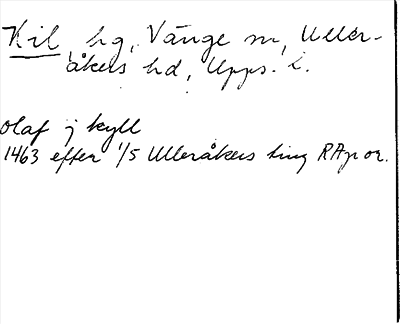 Kil, hg, Vänge sn, Uller-
åkers hd, Upps. l.
olaf j kyll
1463 efter 1/5 Ulleråkers ting RAp or.